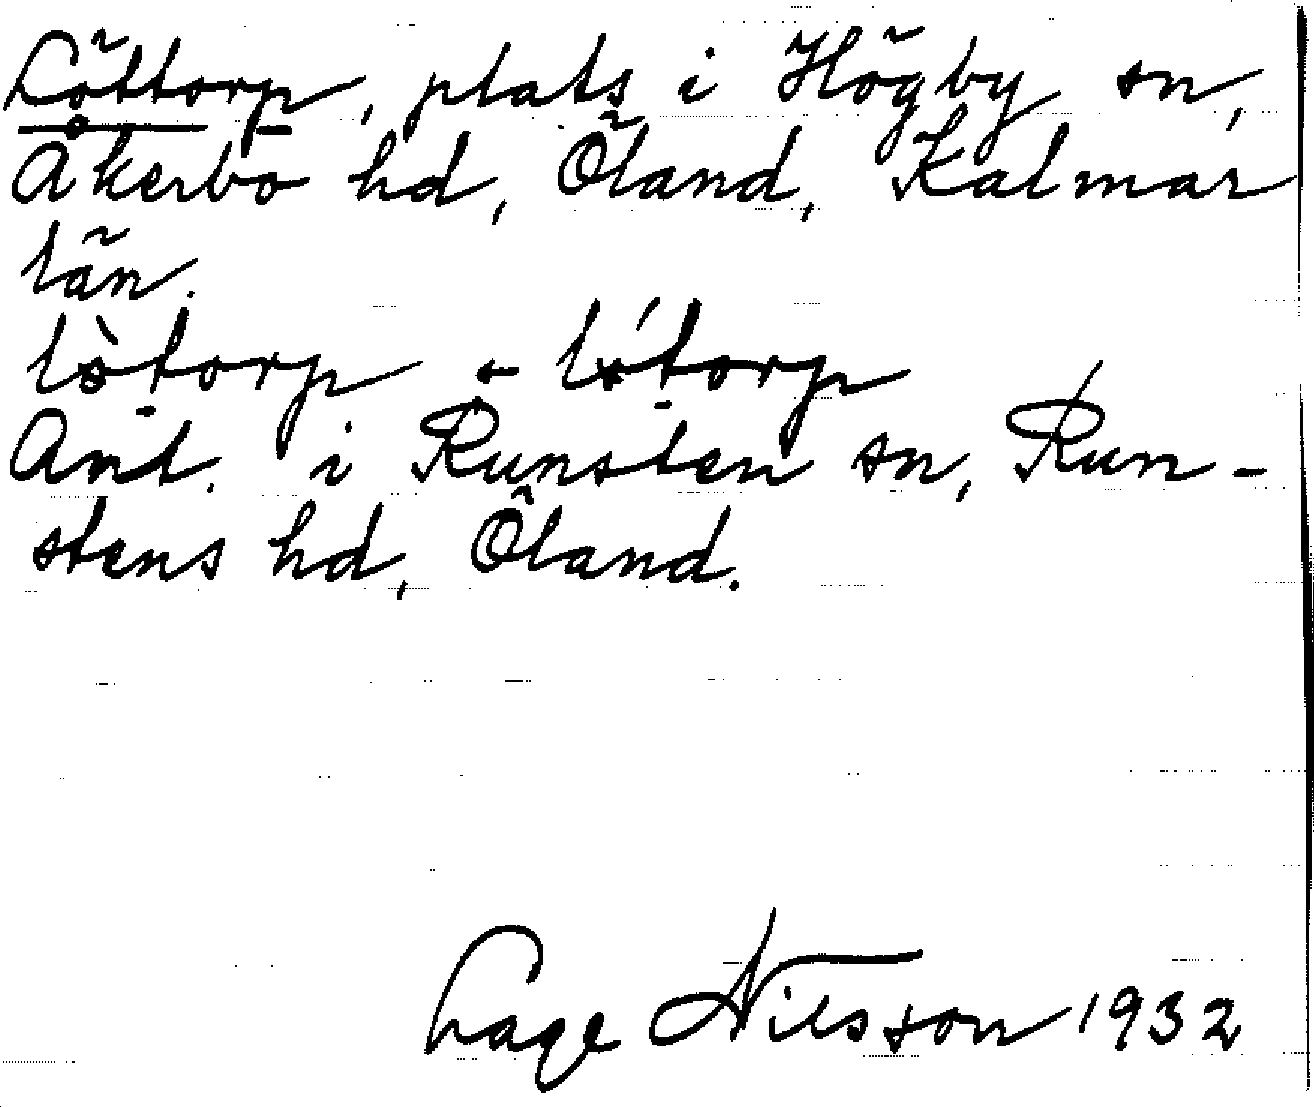 Löttorp, plats i Högby sn,
Åkerbo hd, Öland, Kalmar
län.
Ant. i Runsten sn, Run-
stens hd, Öland.
Lage Nilsson 1932